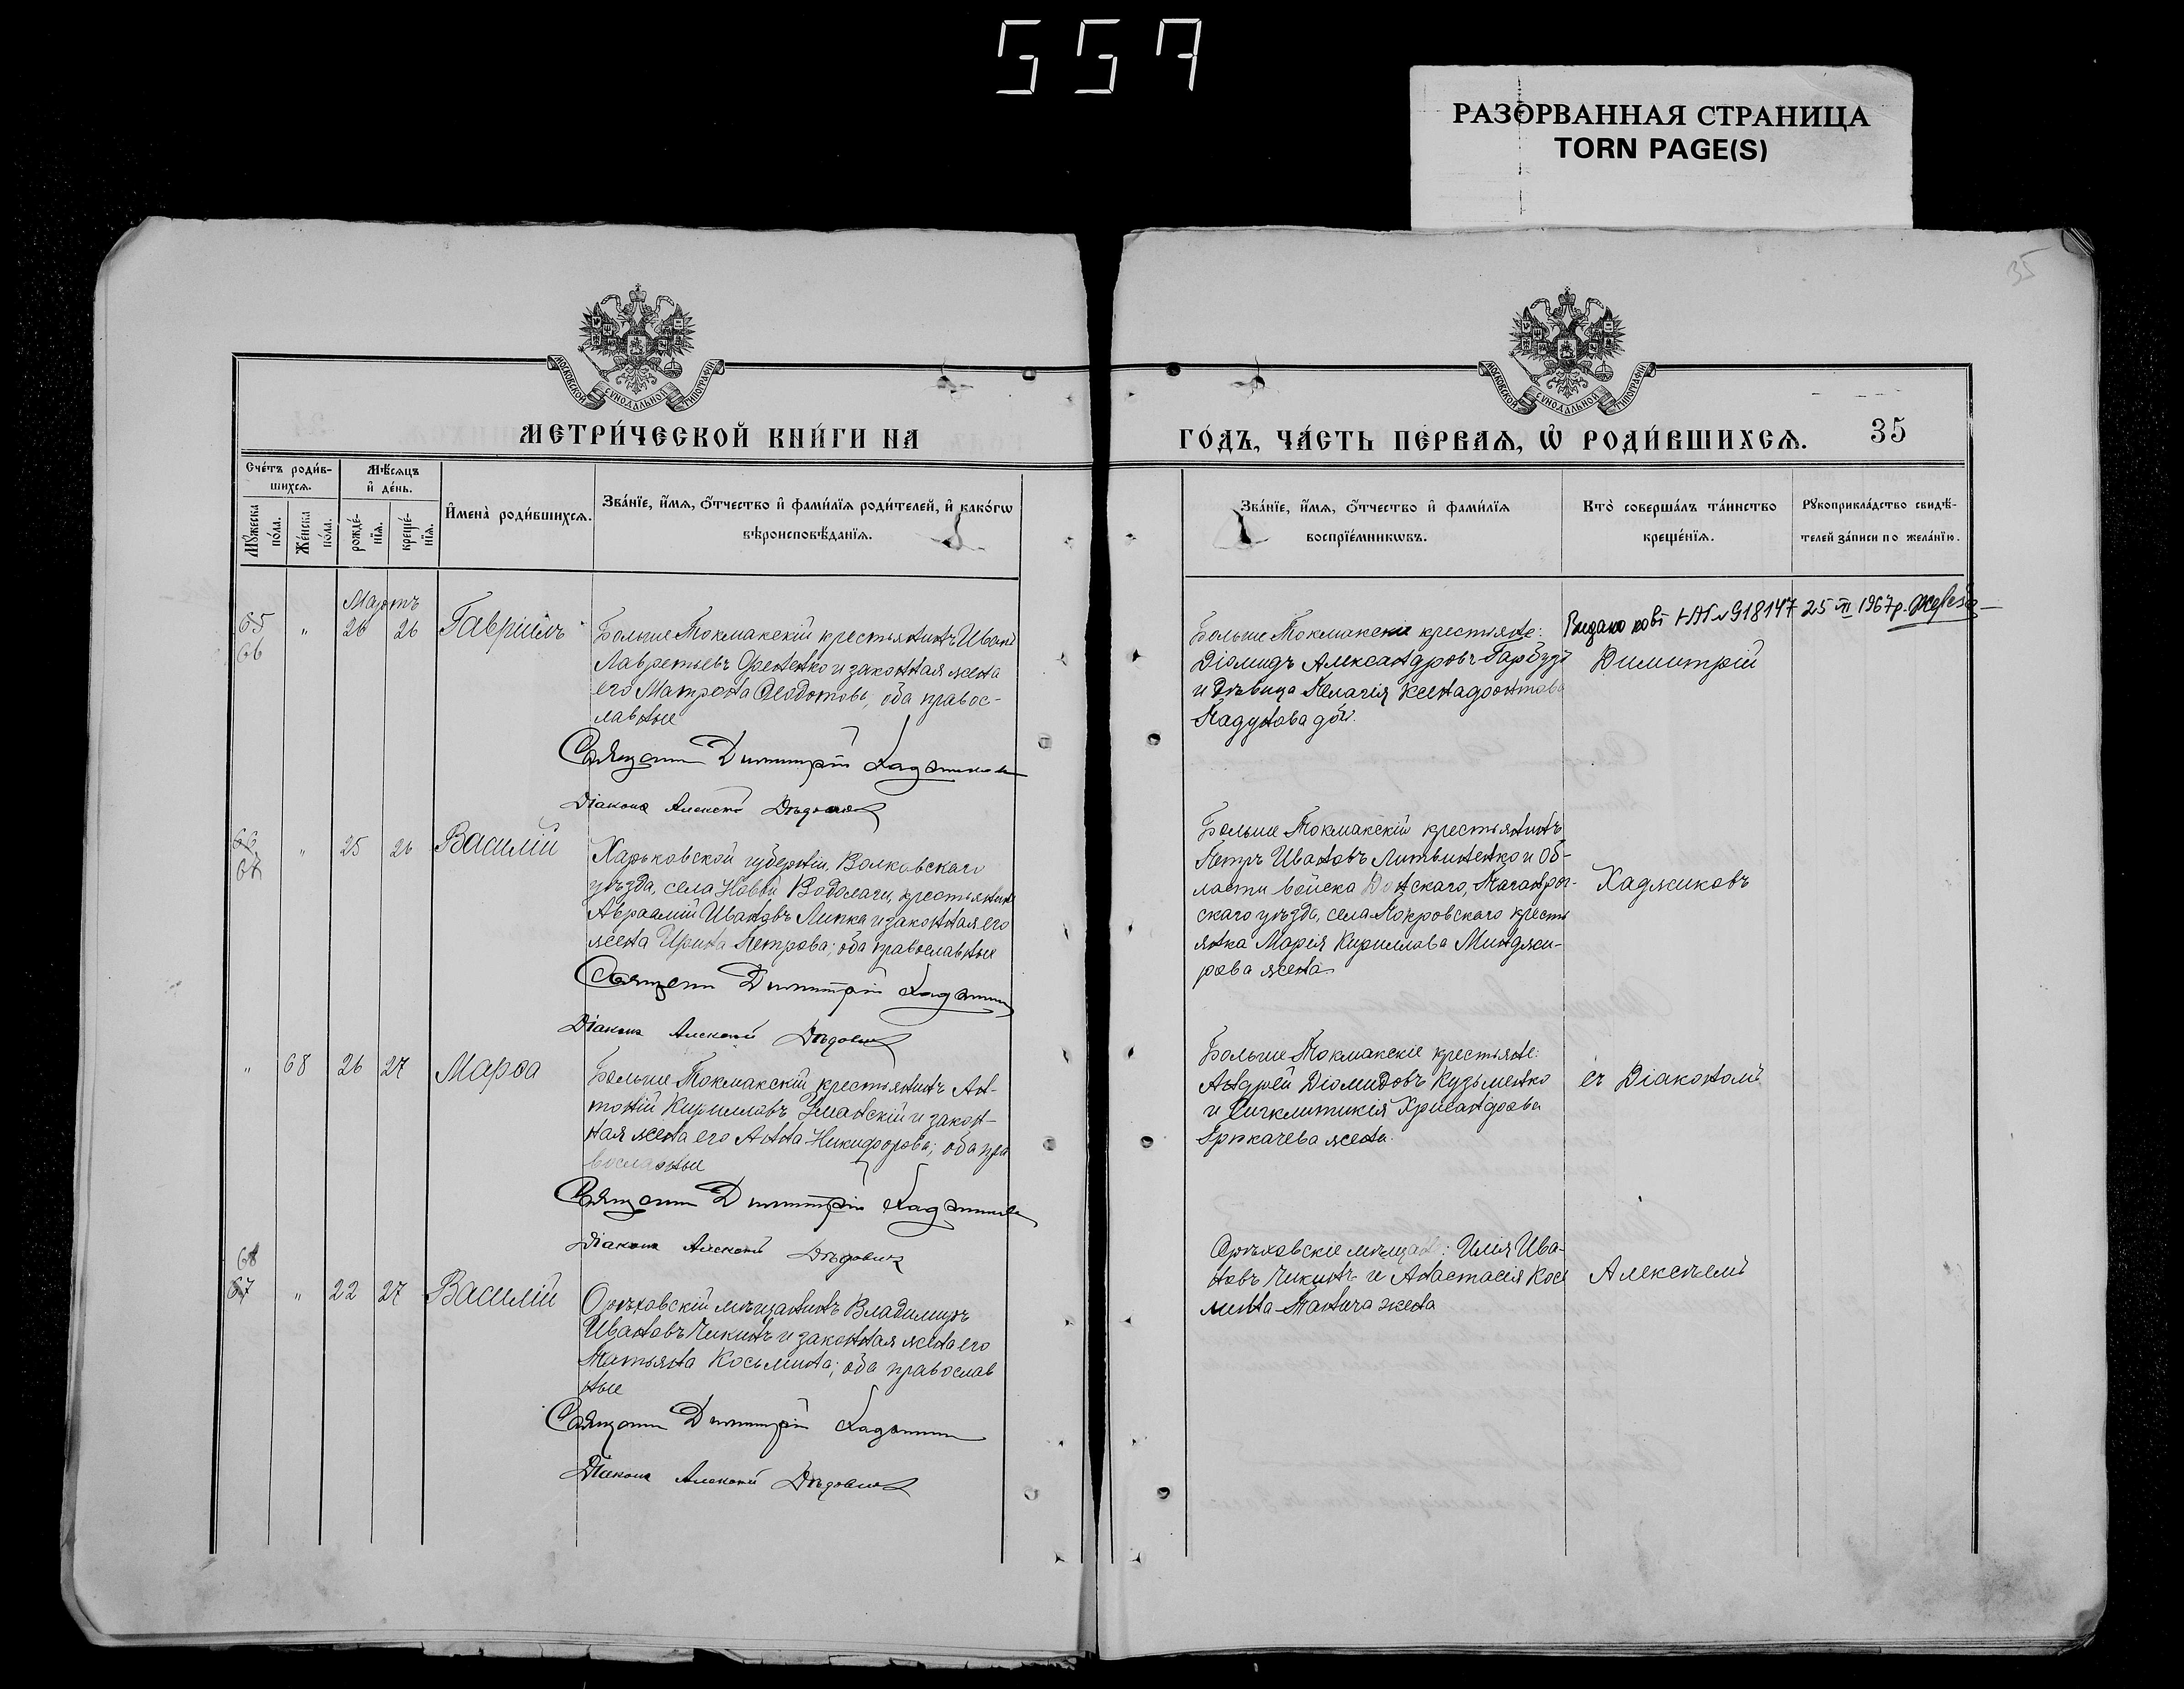 557
РАЗОРВАННАЯ СТРАНИЦА
TORN PAGE(S)
35
МОСКОВСКОЙ СѴНОДАЛЬНОЙ ТИПОГРАФІИ
МОСКОВСКОЙ СѴНОДАЛЬНОЙ ТИПОГРАФІИ
МЕТРИ́ЧЕСКОЙ КНИ́ГИ НА
ГО́ДЪ, ЧА́СТЬ ПЕ́РВАѦ, Ѡ҆ РОДИ́ВШИХСѦ. 35
Сче́тъ роди́в-
шихсѧ.
Мѣ́сѧцъ
и҆ де́нь.
Мꙋ́жеска
по́ла.
Же́нска
по́ла.
рожде́-
нїѧ.
креще́-
нїѧ.
И҆мена̀ роди́вшихсѧ.
Зва́нїе, и҆́мѧ, ѻ҆́тчество и҆ фами́лїѧ роди́телей, и҆ како́гѡ
вѣроисповѣ́данїѧ.
Зва́нїе, и҆́мѧ, ѻ҆́тчество и҆ фами́лїѧ
воспрїе́мникѡвъ.
Кто̀ соверша́лъ та́инство
креще́нїѧ.
Рꙋкоприкла́дство свидѣ́-
телей за́писи по жела́нїю.
Мартъ
65
66
"
26
26
Гавріилъ
Больше Токмакскій крестьянинъ Иванъ
Лаврентьевъ и законная жена
его Матрона Ѳеодотова, оба правос-
лавные
Священн Димитрій Хаджиковъ
Діаконъ Алексѣй Дѣдовичъ
Больше Токмакскіе крестьяне:
Діомидъ Александровъ Гарбузъ
и дѣвица Пелагія Ксенафонтова
Падунова дочь.
Видано 918147 25 VII 1967р.
Димитрій
66
67
"
25
26
Василій
Харьковской губерніи, Волковскаго
уѣзда, села Новой Водолаги, крестьянинъ
Авраамій Ивановъ Липка и законная его
жена Ирина Петрова; оба православные
Священн Димитрій Хаджиковъ
Діаконъ Алексѣй Дѣдовичъ
Больше Токмакскій крестьянинъ
Петръ Ивановъ Литвиненко и Об-
ласти войска Донскаго, Таганрог-
скаго уѣзда, села Покровскаго кресть
янка Марія Кириллова Минджи-
рова жена
Хаджиковъ
"
68
26
27
Марѳа
Больше Токмакскій крестьянинъ Ан-
тоній Кирилловъ Уманскій и закон-
ная жена его Анна Никифорова; оба пра
вославные
Священн Димитрій Хаджиковъ
Діаконъ Алексѣй Дѣдовичъ
Больше Токмакскіе крестьяне:
Андрей Діомидовъ Кузьменко
и Сигклитикія Хрисанфова
Грикачева жена.
съ Діакономъ
68
67
"
22
27
Василій
Орѣховскій мѣщанинъ Владимиръ
Ивановъ Чикинъ и законная жена его
Татьяна Косьмина; оба православ
ные
Священн Димитрій Хаджиковъ
Діаконъ Алексѣй Дѣдовичъ
Орѣховскіе мѣщане: Илія Ива-
новъ Чикинъ и Анастасія Кось
мина Танича жена
Алексѣемъ